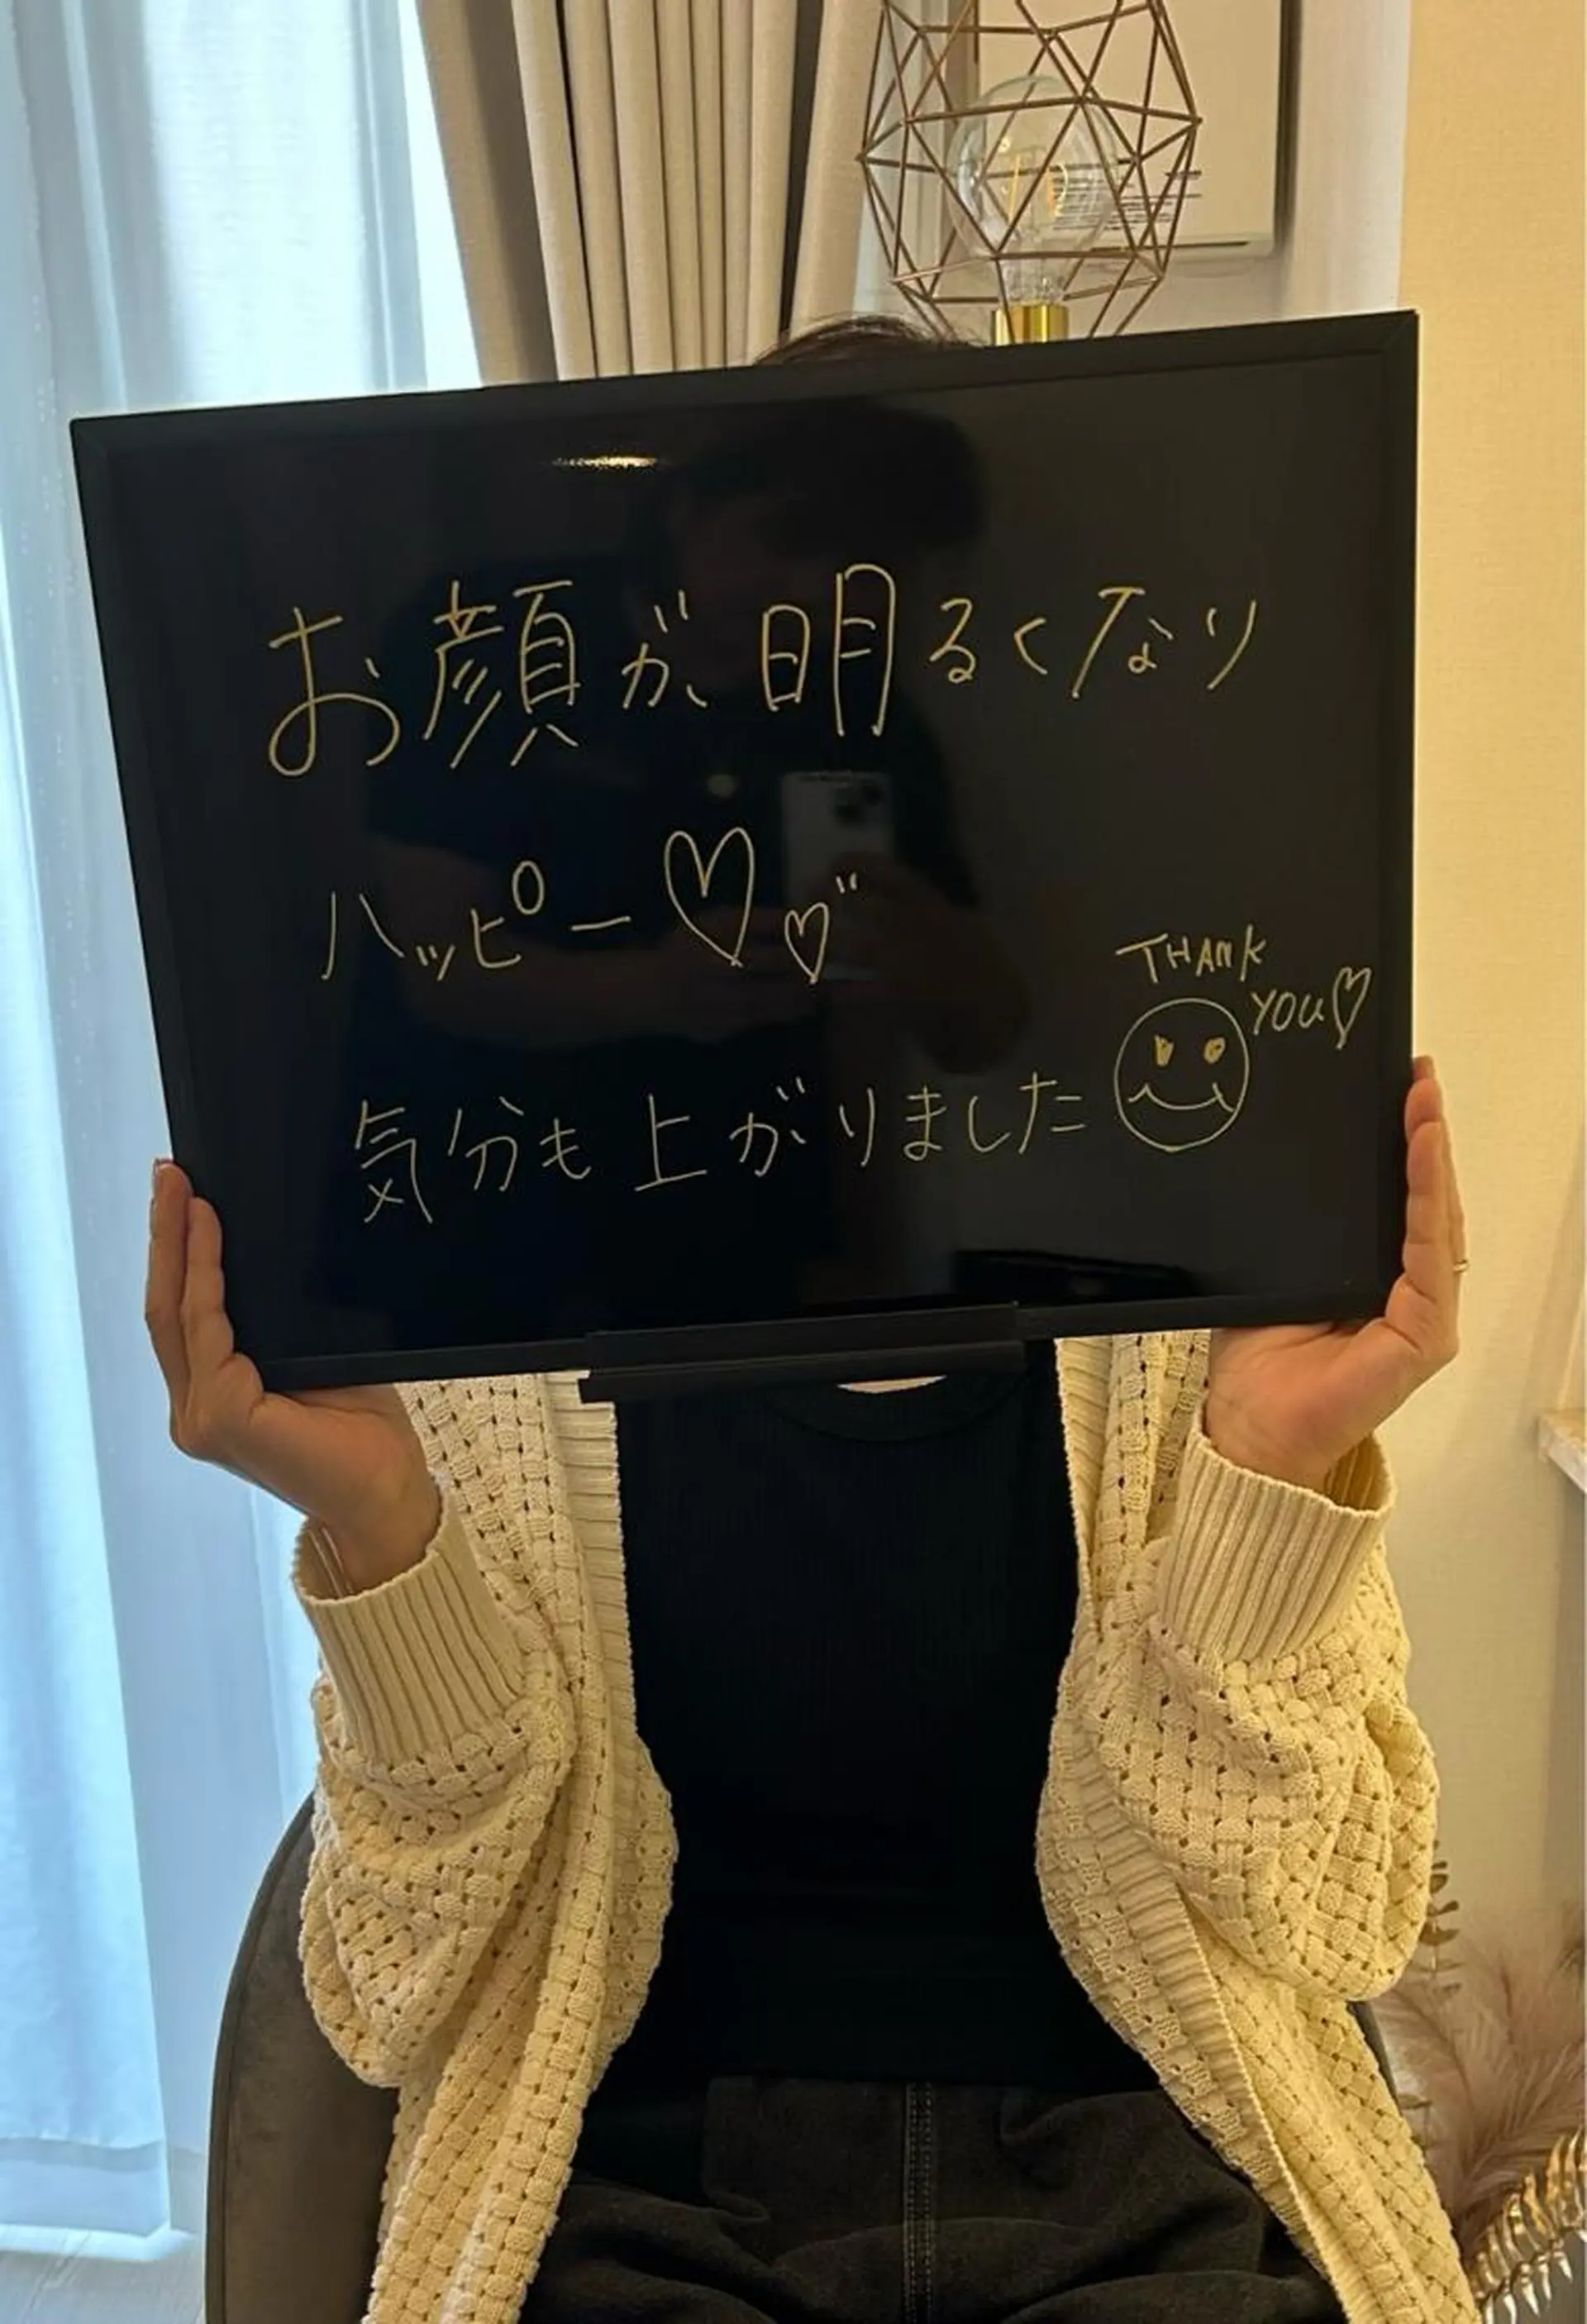 お顔が、明るくなり
ハッピー♡♡"
気分も上がりました
THANK
YOU♡